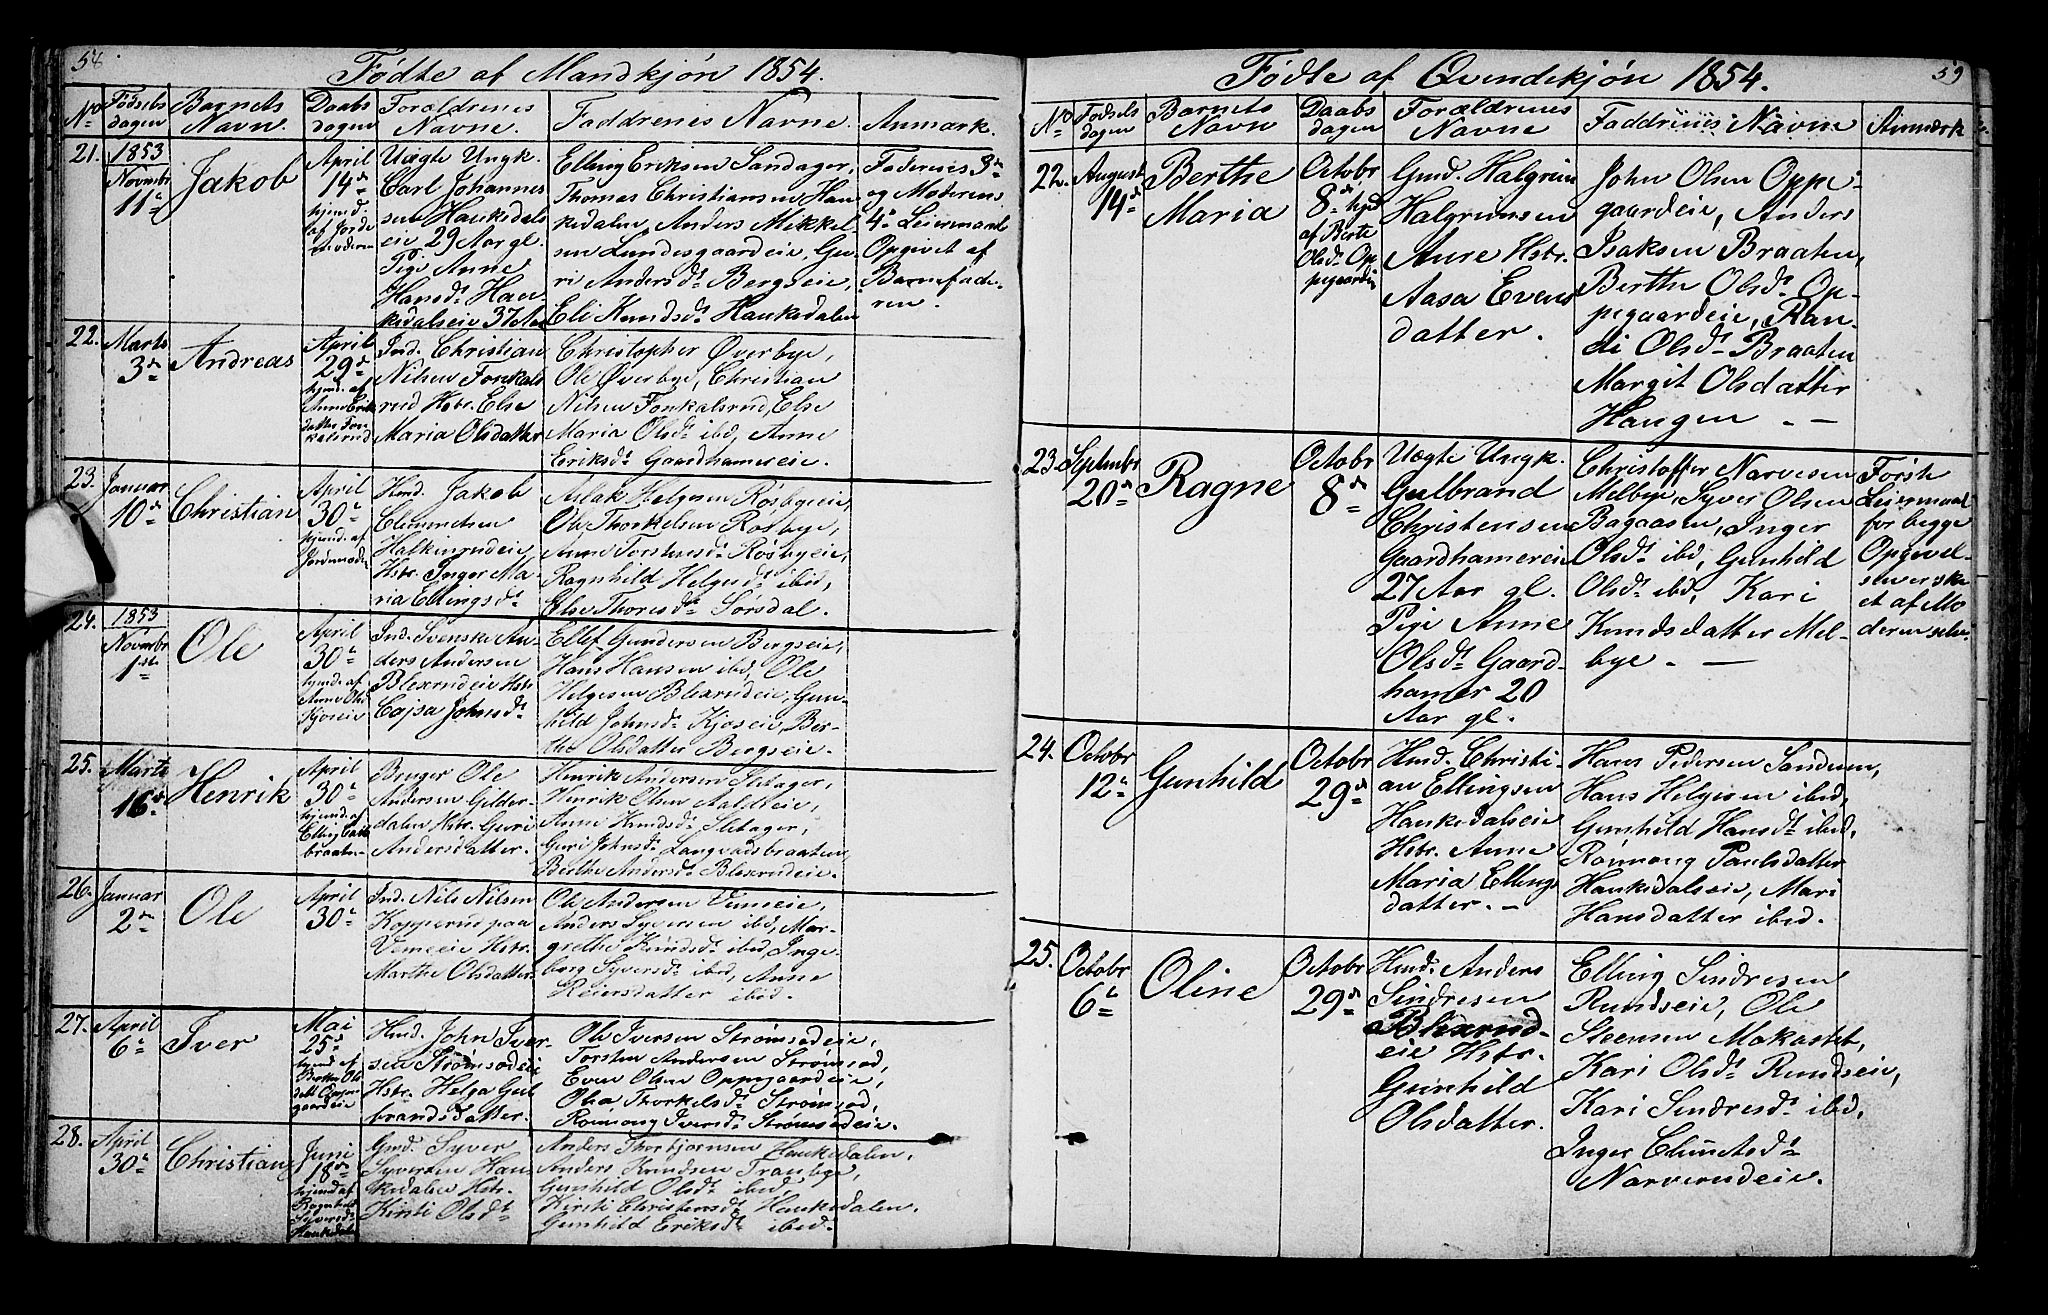 58.
Fødte af Mandkjøn 1854.
No Fødsels dagen Barnets Navn. Daabs dagen Forældrenes Navne. Faddrenes Navne. Anmærk.
21.
1853
Novembr
11te
Jakob
April
14de
hjemd.
af Jorde
moderen
Uægte Ungk.
Carl Johannes
sen Hauksdals
eie 29 Aar gl.
Pige Anne
Hansdt. Hau-
ksdalseie 37 Aar
Elling Eriksen Sandager,
Thomas Christiansen Hau
ksdalen Anders Mikkel
sen Lundesgaardeie, Gu-
ri Andersdt. Bergseie,
Eli Knudsdt. Hauksdalen
Faderens 3de
og Moderens
4de Leiermaal
Opgivet af
Barnefade-
ren.
22.
Marts
3de
Andreas
April
29de
hjemd. af
Anne Erik
datter Fon
kalsrud
Ind. Christian
Nilsen Fonkals
rud Hstr. Else
Maria Olsdatter
Christopher Øverbye,
Ole Øverbye, Christian
Nilsen Fonkalsrud, Else
Maria Olsdt. ibd, Anne
Eriksdt. Gaardhamereie.
23.
Januar
10de
Christian
April
30te
hjemd. af
Jordemoder
Hmd. Jakob
Clemmetsen
Halkinrudeie
Hstr. Inger Ma-
ria Ellingsdt.
Aslak Helgesen Røsbyeeie,
Ole Thorkelsen Røsbye,
Anne Torstensdt. Røsbyeeie,
Ragnhild Helgesdt. ibid,
Else Thoresdt. Sørsdal.
24.
1853
Novembr
1ste
Ole
April
30te
hjemd. af
Anne Olsd
Kjoseie
Ind. Svenske An-
ders Andersen
Blexrudeie Hstr.
Cajsa Johnsdt.
Ellef Gundersen Bergseie,
Hans Hansen ibd, Ole
Helgesen Blexrudeie, Gun-
hild Johnsdt. Kjoseie, Ber-
the Olsdatter Bergseie.
25.
Marts
16de
Henrik
April
30te
hjemd. af
Elling
braaten
Bruger Ole
Andersen Gilder-
dalen Hstr. Guri
Andersdatter.
Henrik Andersen Sletager,
Henrik Olsen
Anne Knudsdt. Sletager,
Guri Johnsdt. Langvadsbraaten
Berthe Andersdt. Blexrudeie.
26.
Januar
2den
Ole
April
30te
Ind. Nils Nilsen
Kopperud paa
Vemeeie Hstr.
Marthe Olsdatter.
Ole Andersen Vemeeie,
Anders Syversen ibd, Mar-
grethe Knudsdt. ibd, Inge
borg Syversdt. ibid, Anne
Reiersdatter ibid.
27.
April
6te
Iver
Mai
25de
hjemd af
Berthe Ols
datt. Oppe
gaardeie
Hmd. John Iver-
sen Strømsodeie
Hstr. Helga Gul
brandsdatter.
Ole Iversen Strømsodeie,
Torsten Andersen Strømsod,
Even Olsen Oppegaardeie,
Olia Thorkelsdt. Strømsod,
Rønnong Iversdt. Strømsodeie.
28.
April
30te
Christian
Juni
18de
hjemd af
Ragnhild
Syversdt
Hauksdalen
Gmd. Syver
Syversen Hau
ksdalen Hstr.
Kirsti Olsdt.
Anders Thorbjørnsen Hauksdalen,
Anders Knudsen Tranbye,
Gunhild Olsdt. ibid,
Kirsti Christensdt. Hauksdalen.
Gunhild Eriksdt. ibid.
59
Fødte af Qvindekjøn 1854.
No Fødsels dagen Barnets Navn Daabs dagen Forældrenes Navne Faddrenes Navne Anmærk
22.
August
14de
Berthe
Maria
Octobr
8de hjd
af Berte
Olsdt. Op
pegaardeie
Gmd. Halgrim
Halgrimsen
Aure Hstr.
Aasa Evens
datter.
John Olsen Oppe-
gaardeie, Anders
Isaksen Braaten,
Berthe Olsdt. Op-
pegaardeie, Ran-
di Olsdt. Braaten
Margit Olsdatter
Haugen. –
23.
Septembr
20de
Ragne
Octobr
8de
Uægte Ungk.
Gulbrand
Christensen
Gaardhamereie
27 Aar gl.
Pige Anne
Olsdt. Gaard-
hamer 20
Aar gl.
Christoffer Narvesen
Melbye, Syver Olsen
Bagaasen, Inger
Olsdt. ibd, Gunhild
Olsdt. ibd, Kari
Knudsdatter Mel-
bye. –
Første
Leiermaal
for begge
Opgivel-
sen er ske
et af Mo
deren selv.
24.
Octobr
12te
Gunhild
Octobr
29de
Hmd. Christi-
an Ellingsen
Hauksdalseie
Hstr. Anne
Maria Ellings
datter. –
Hans Pedersen Sandmen,
Hans Helgesen ibid,
Gunhild Hansdt. ibid,
Rønnong Paulsdatter
Hauksdalseie, Mari
Hansdatter ibid.
25.
Octobr
6te
Oline
Octobr
29de
Hmd. Anders
Sindresen
Blexrud-
eie Hstr.
Gunhild
Olsdatter.
Elling Sindresen
Rundseie, Ole
Steensen Makastet,
Kari Olsdt. Rundseie,
Kari Sindresdt. ibid,
Inger Clemetsdt.
Narverudeie.